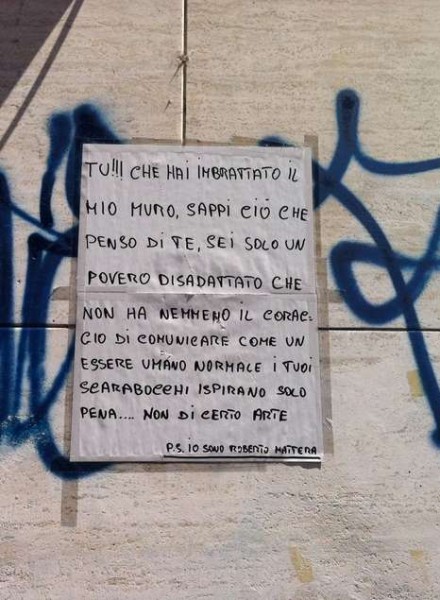 TU!!! CHE HAI IMBRATTATO IL
MIO MURO, SAPPI CIÓ CHE
PENSO DI TE, SEI SOLO UN
POVERO DISADATTATO CHE
NON HA NEMMENO IL CORAG=
GIO DI COMUNICARE COME UN
ESSERE UMANO NORMALE I TUOI
SCARABOCCHI ISPIRANO SOLO
PENA.... NON DI CERTO ARTE
P.S. IO SONO ROBERTO MATTERA